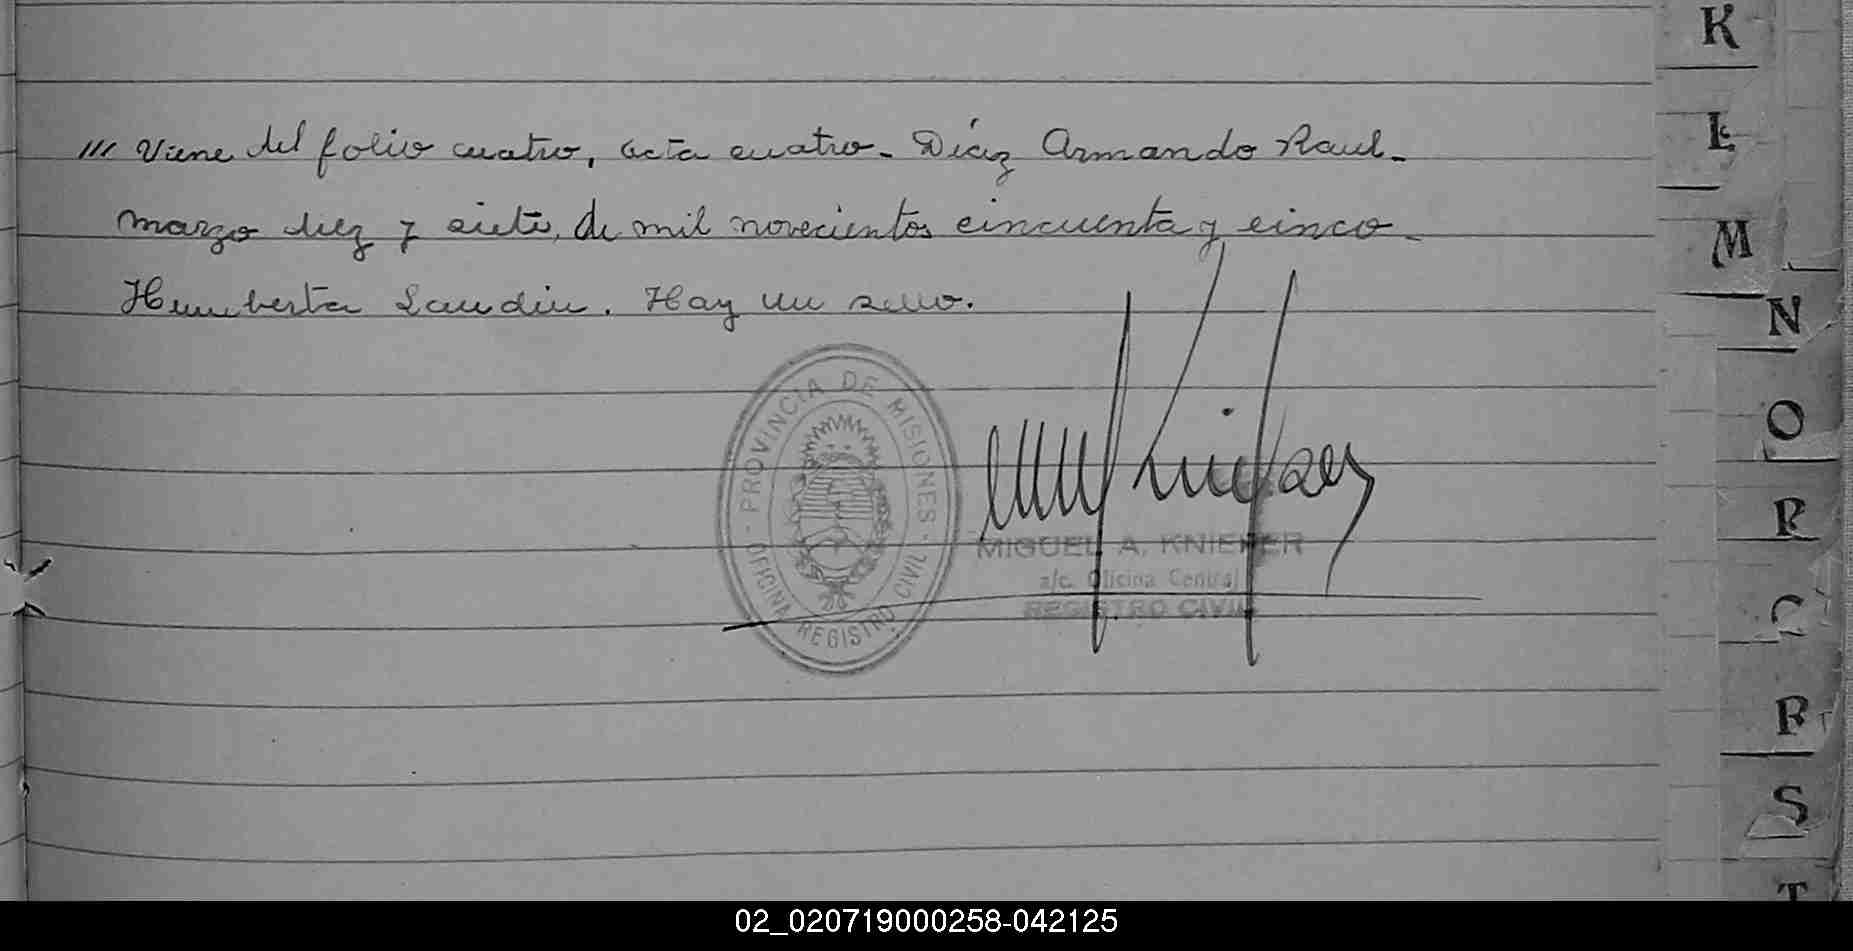 /// Viene del folio cuatro, acta cuatro - Díaz Armando Raul -
marzo diez y siete, de mil novecientos cincuenta y cinco -
Humberta Landin. Hay un sello.
PROVINCIA DE MISIONES
OFICINA REGISTRO CIVIL
MIGUEL A. KNIEPER
a/c. Oficina Central
REGISTRO CIVIL
K
L
M
N
O
P
Q
R
S
T
02_020719000258-042125